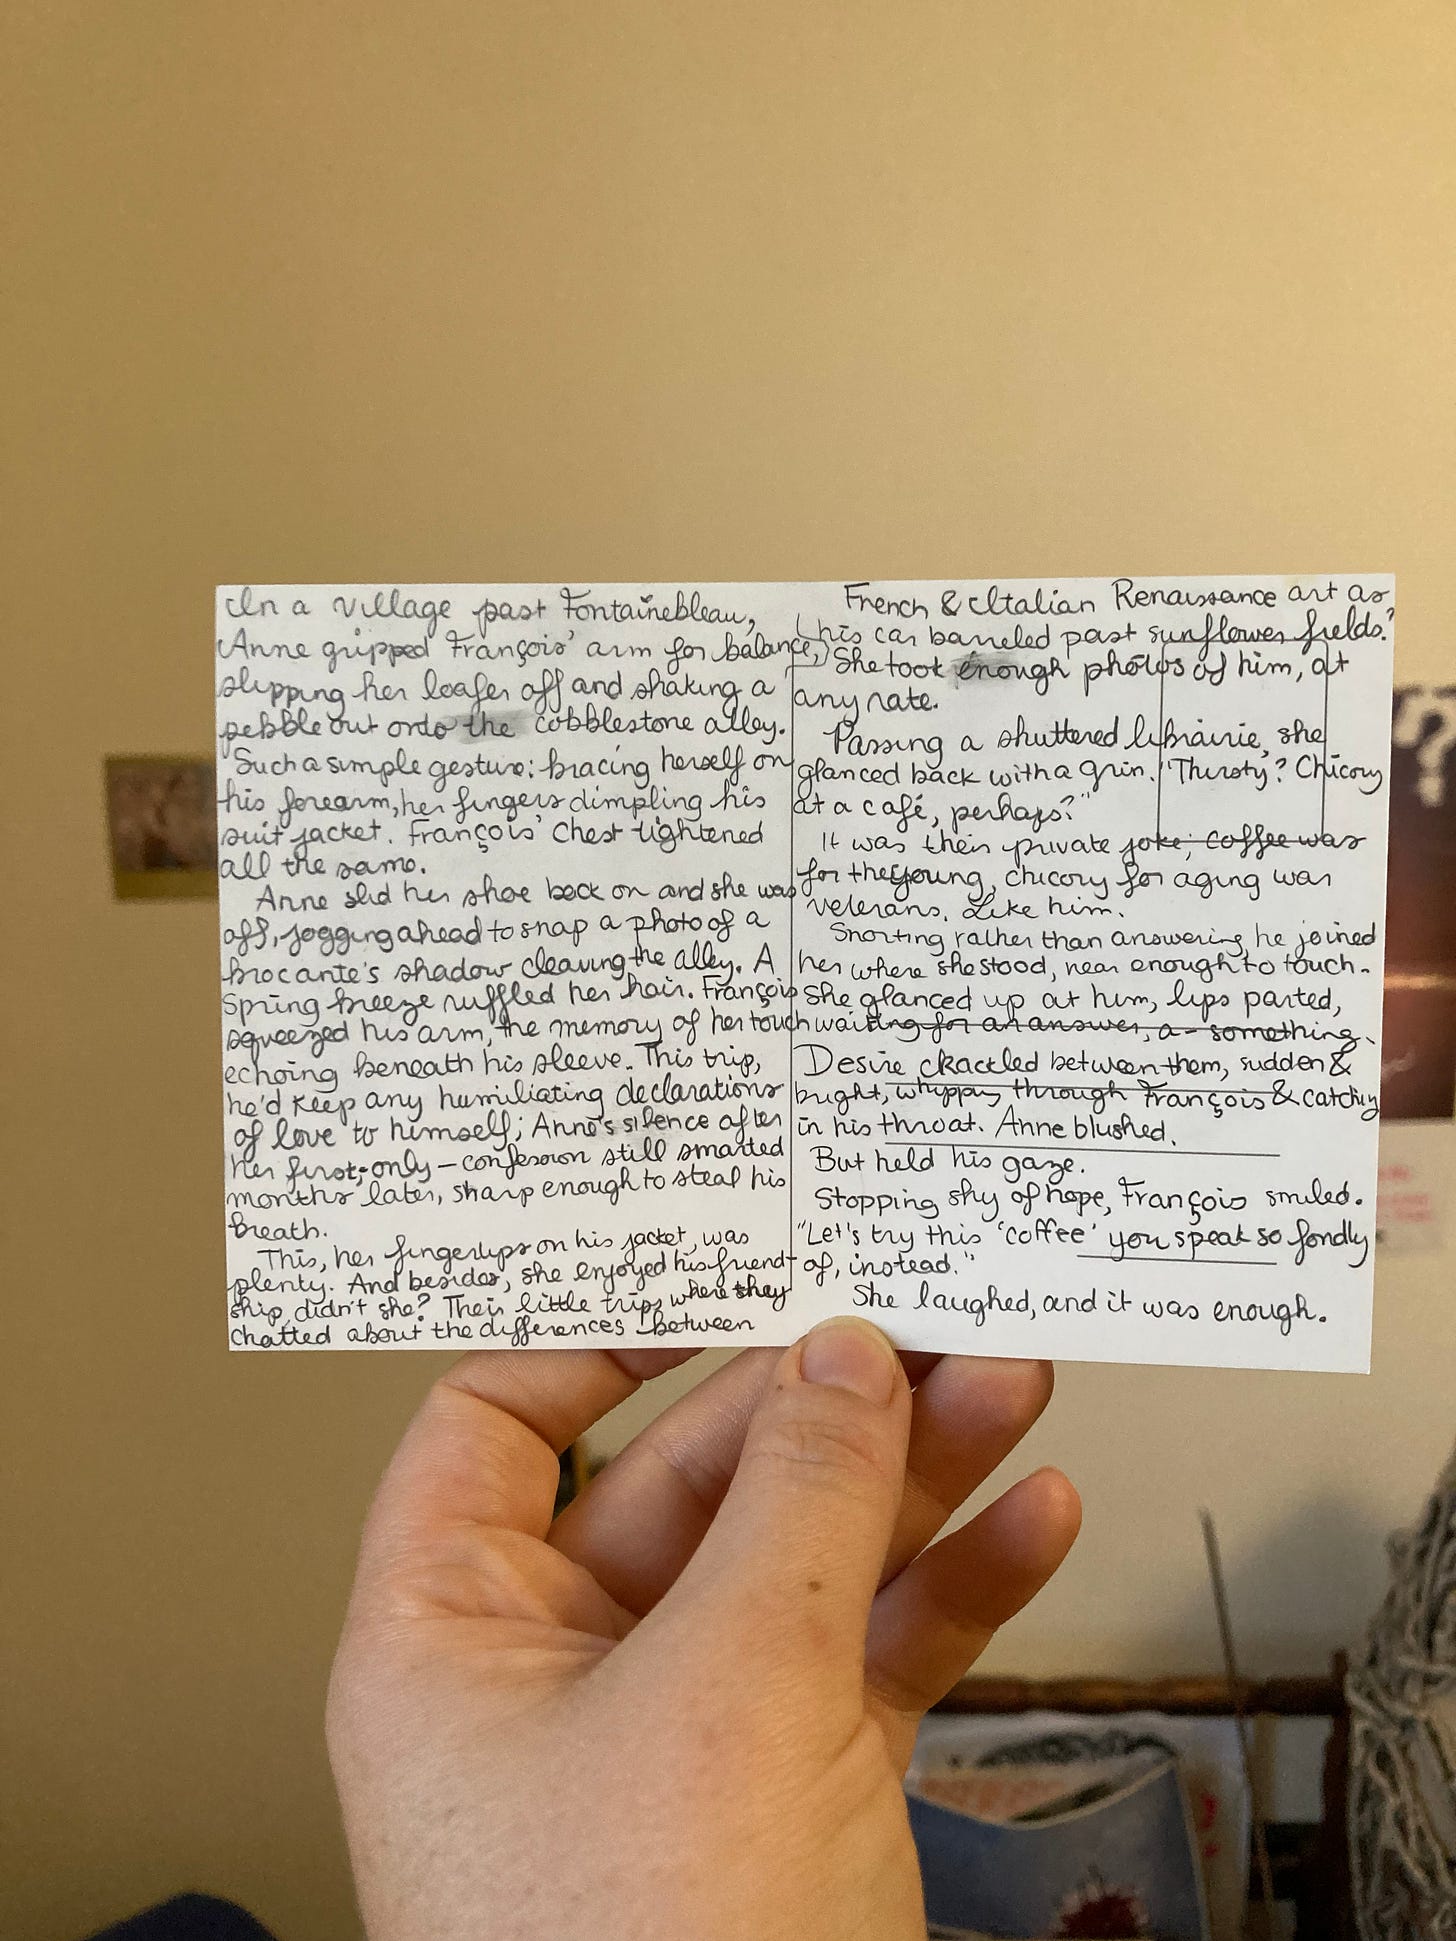 In a village past Fontainebleau,
Anne gripped François' arm for balance,
slipping her loafer off and shaking a
pebble out onto the cobblestone alley.
Such a simple gesture: bracing herself on
his forearm, her fingers dimpling his
suit jacket. François' chest tightened
all the same.
Anne slid her shoe back on and she was
off, jogging ahead to snap a photo of a
brocante's shadow cleaving the alley. A
spring breeze ruffled her hair. François
squeezed his arm, the memory of her touch
echoing beneath his sleeve. This trip,
he'd keep any humiliating declarations
of love to himself; Anne's silence after
her first-only-confession still smarted
months later, sharp enough to steal his
breath.
This, her fingertips on his jacket, was
plenty. And besides, she enjoyed his friend-
ship, didn't she? Their little trips where they
chatted about the differences between
French & Italian Renaissance art as
his car barreled past sunflower fields?
She took enough photos of him, at
any rate.
Passing a shuttered librairie, she
glanced back with a grin. "Thirsty? Chicory
at a café, perhaps?"
It was their private joke; coffee was
for the young, chicory for aging war
veterans. Like him.
Snorting rather than answering, he joined
her where she stood, near enough to touch.
She glanced up at him, lips parted,
waiting for an answer, a - something.
Desire crackled between them, sudden &
bright, whipping through François & catching
in his throat. Anne blushed.
But held his gaze.
Stopping shy of hope, François smiled.
"Let's try this 'coffee' you speak so fondly
of, instead."
She laughed, and it was enough.